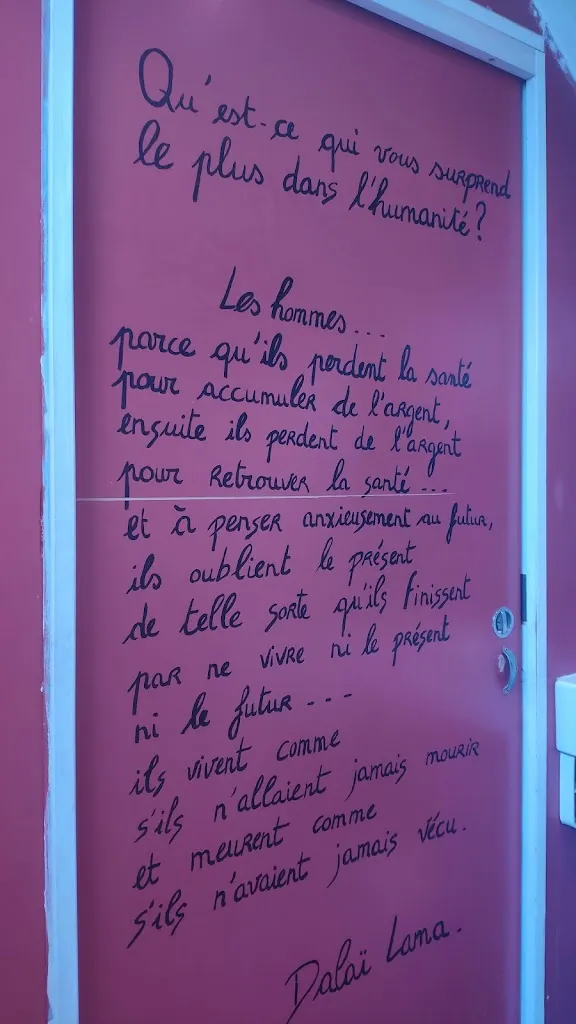 Qu'est-ce qui vous surprend
le plus dans l'humanité?
Les hommes...
parce qu'ils perdent la santé
pour accumuler de l'argent,
ensuite ils perdent de l'argent
pour retrouver la santé...
et à penser anxieusement au futur,
ils oublient le présent
de telle sorte qu'ils finissent
par ne vivre ni le présent
ni le futur...
ils vivent comme
s'ils n'allaient jamais mourir
et meurent comme
s'ils n'avaient jamais vécu.
Dalaï Lama.